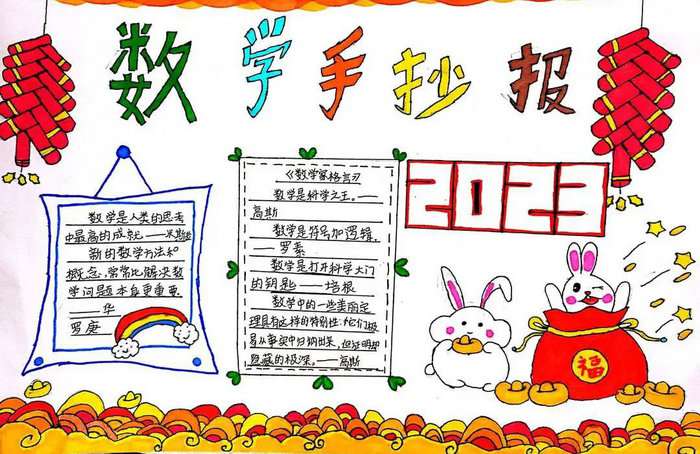 数学手抄报
数学是人类的思考
中最高的成就 ——米斯拉
新的数学方法和
概念,常常比解决数
学问题本身更重要.
——华
罗庚
《数学家格言》
数学是科学之王.——
高斯
数学是符号加逻辑.
——罗素
数学是打开科学大门
的钥匙——培根
数学中的一些美丽定
理具有这样的特别性:他们极
易从事实中归纳出来,但证明却
隐藏的极深.——高斯
2023
福